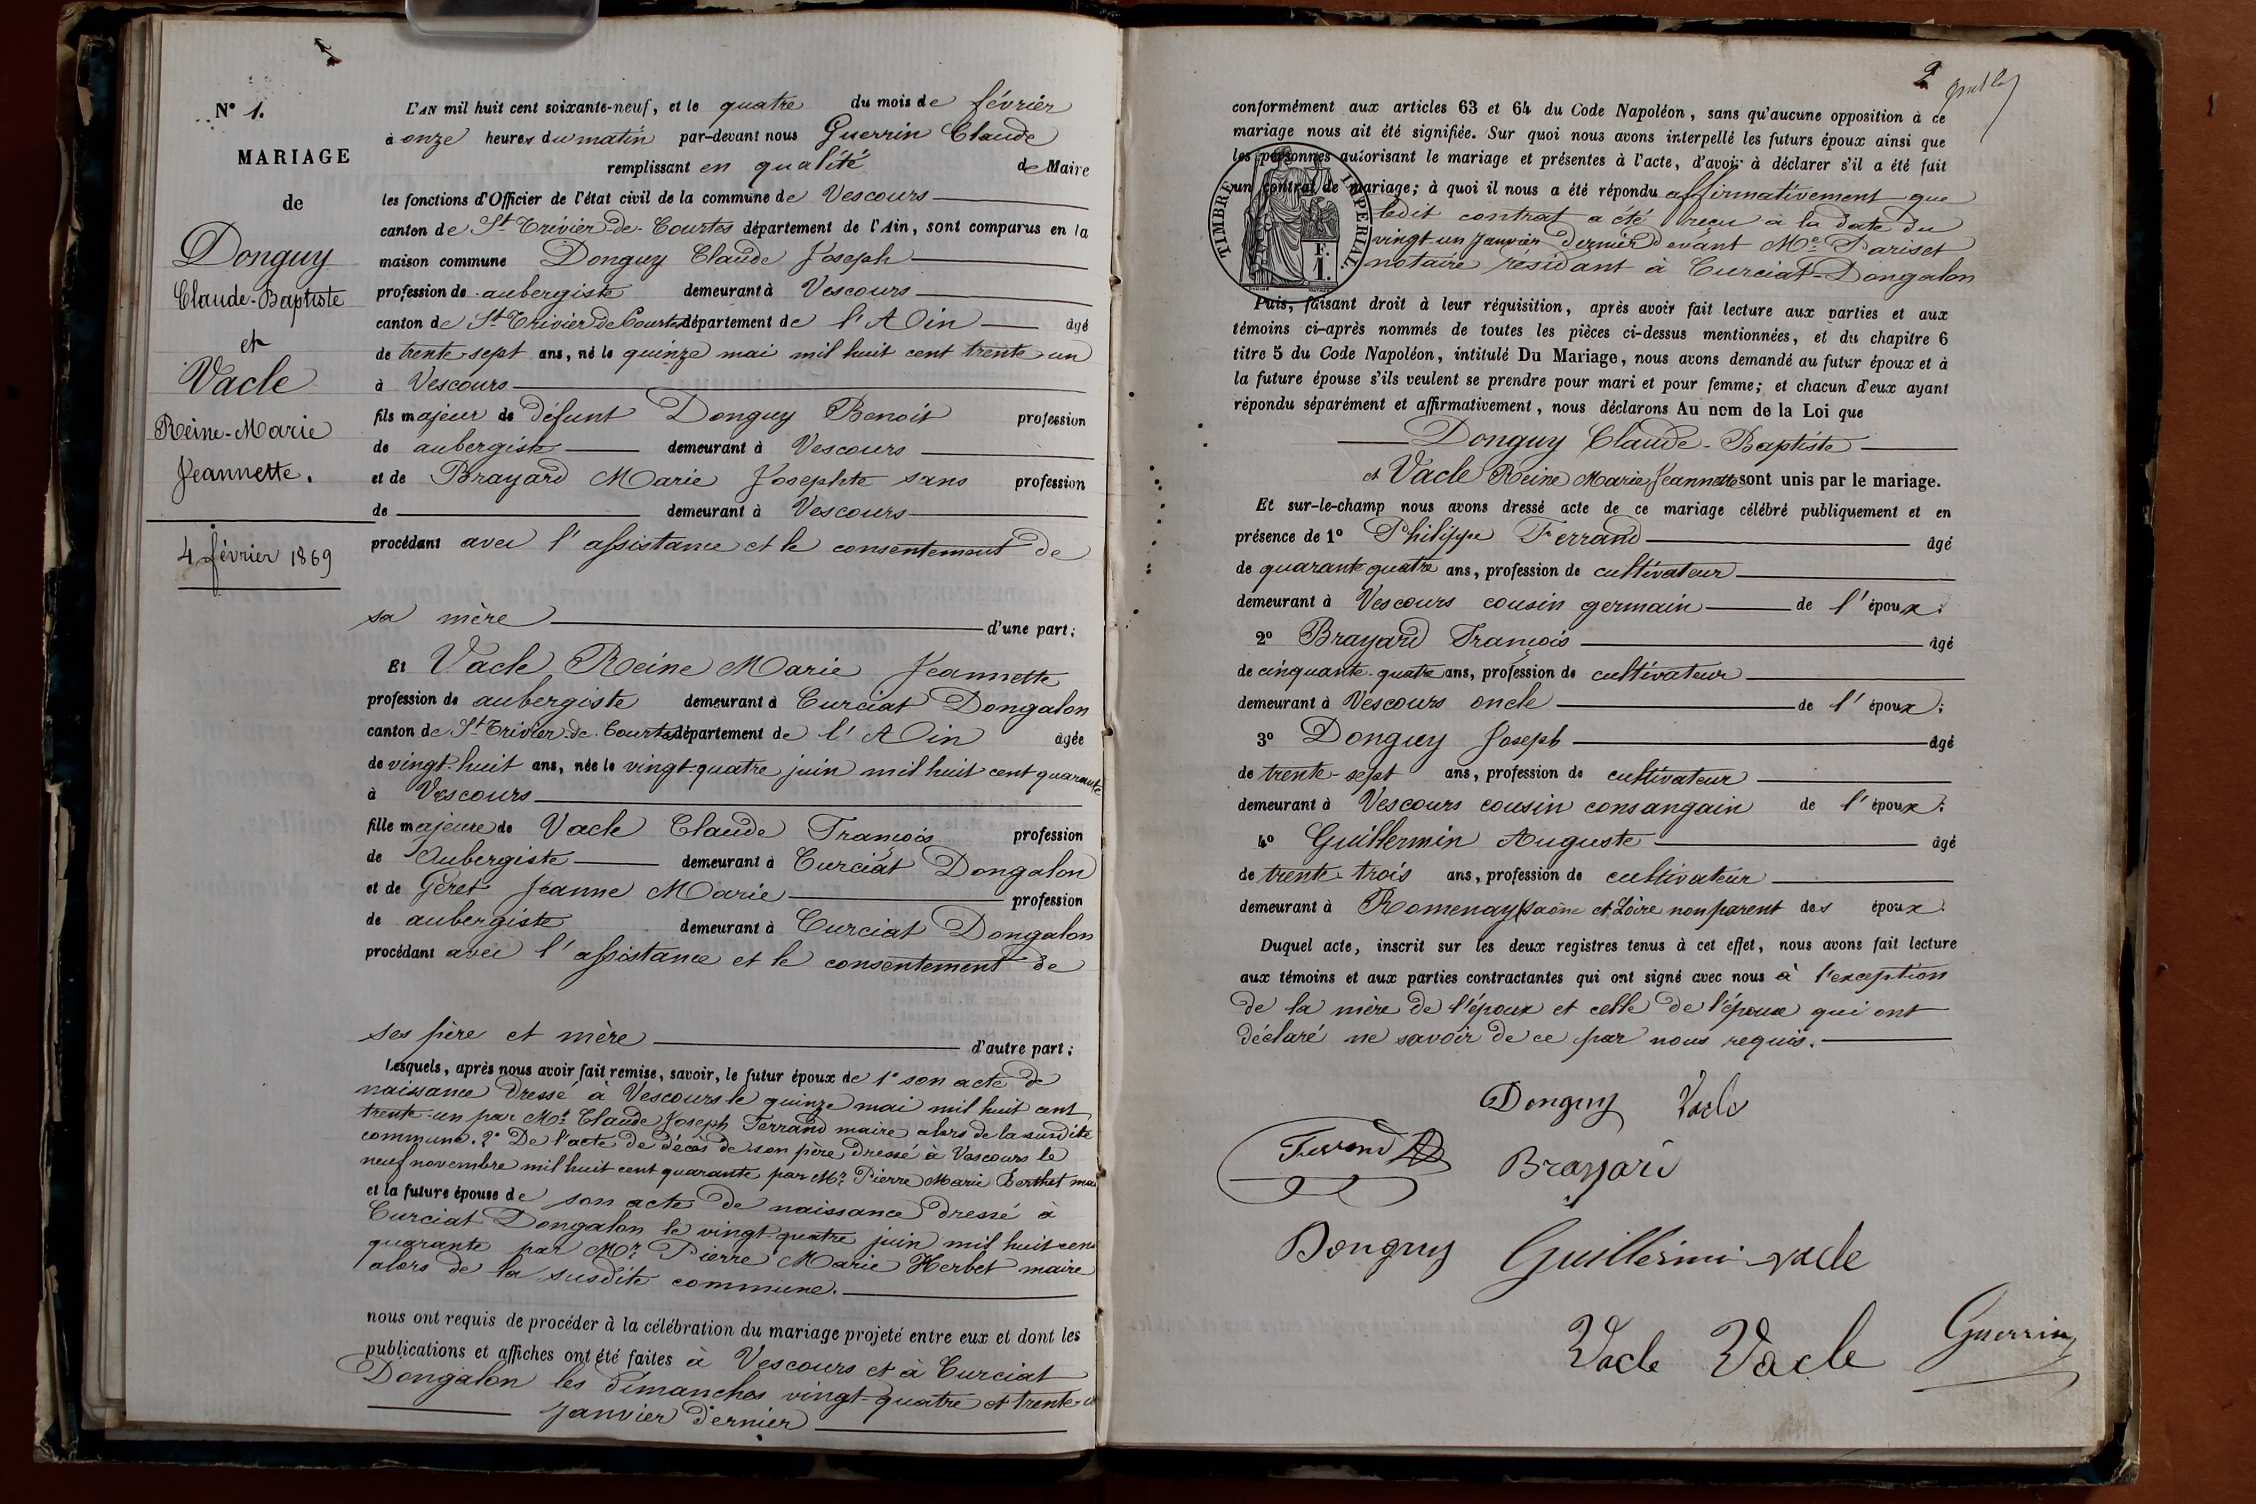 N° 1.
MARIAGE
de
Donguy
Claude-Baptiste
et
Vacle
Reine-Marie
Jeannette.
4 février 1869
L'AN mil huit cent soixante-neuf, et le quatre du mois de février
à onze heures du matin par-devant nous Guerrin Claude
remplissant en qualité de Maire
les fonctions d'Officier de l'état civil de la commune de Vescours
canton de St Trivier-de-Courtes département de l'Ain, sont comparus en la
maison commune Donguy Claude Joseph
profession de aubergiste demeurant à Vescours
canton de St Trivier de Courtes département de l'Ain âgé
de trente sept ans, né le quinze mai mil huit cent trente un
à Vescours
fils majeur de défunt Donguy Benoit profession
de aubergiste demeurant à Vescours
et de Brayard Marie Josephte sans profession
de demeurant à Vescours
procédant avec l'assistance et le consentement de
sa mère d'une part;
Et Vacle Reine Marie Jeannette
profession de aubergiste demeurant à Curciat Dongalon
canton de St Trivier-de-Courtes département de l'Ain âgée
de vingt-huit ans, née le vingt-quatre juin mil huit cent quarante
à Vescours
fille majeure de Vacle Claude François profession
de Aubergiste demeurant à Curciat Dongalon
et de Géret Jeanne Marie profession
de aubergiste demeurant à Curciat Dongalon
procédant avec l'assistance et le consentement de
ses père et mère d'autre part;
Lesquels, après nous avoir fait remise, savoir, le futur époux de 1° son acte de
naissance dressé à Vescours le quinze mai mil huit cent
trente-un par Mr Claude Joseph Ferrand maire alors de la susdite
commune. 2° De l'acte de décès de son père dressé à Vescours le
neuf novembre mil huit cent quarante par Mr Pierre Marie Berthet mai
et la future épouse de son acte de naissance dressé à
Curciat Dongalon le vingt-quatre juin mil huit cent
quarante par Mr Pierre Marie Herbet maire
alors de la susdite commune.
nous ont requis de procéder à la célébration du mariage projeté entre eux et dont les
publications et affiches ont été faites à Vescours et à Curciat
Dongalon les dimanches vingt-quatre et trente-un
janvier dernier
2
conformément aux articles 63 et 64 du Code Napoléon, sans qu'aucune opposition à ce
mariage nous ait été signifiée. Sur quoi nous avons interpellé les futurs époux ainsi que
les personnes autorisant le mariage et présentes à l'acte, d'avoir à déclarer s'il a été fait
un contrat de mariage; à quoi il nous a été répondu affirmativement que
ledit contrat a été reçu à la date du
vingt-un janvier dernier devant Me Pariset
notaire résidant à Curciat-Dongalon
TIMBRE IMPERIAL.
F.
1.
Puis, faisant droit à leur réquisition, après avoir fait lecture aux parties et aux
témoins ci-après nommés de toutes les pièces ci-dessus mentionnées, et du chapitre 6
titre 5 du Code Napoléon, intitulé Du Mariage, nous avons demandé au futur époux et à
la future épouse s'ils veulent se prendre pour mari et pour femme; et chacun d'eux ayant
répondu séparément et affirmativement, nous déclarons Au nom de la Loi que
Donguy Claude-Baptiste
et Vacle Reine Marie Jeannette sont unis par le mariage.
Et sur-le-champ nous avons dressé acte de ce mariage célébré publiquement et en
présence de 1° Philippe Ferrand âgé
de quarante quatre ans, profession de cultivateur
demeurant à Vescours cousin germain de l'époux.
2° Brayard François âgé
de cinquante-quatre ans, profession de cultivateur
demeurant à Vescours oncle de l'époux;
3° Donguy Joseph âgé
de trente-sept ans, profession de cultivateur
demeurant à Vescours cousin consangain de l'époux;
4° Guillermin Auguste âgé
de trente-trois ans, profession de cultivateur
demeurant à Romenay (Saône et Loire non parent des époux.
Duquel acte, inscrit sur les deux registres tenus à cet effet, nous avons fait lecture
aux témoins et aux parties contractantes qui ont signé avec nous à l'exception
de la mère de l'époux et celle de l'épouse qui ont
déclaré ne savoir de ce par nous requis.
Donguy Vacle
Ferrand Brayard
Donguy Guillermin Vacle
Vacle Vacle Guerrin